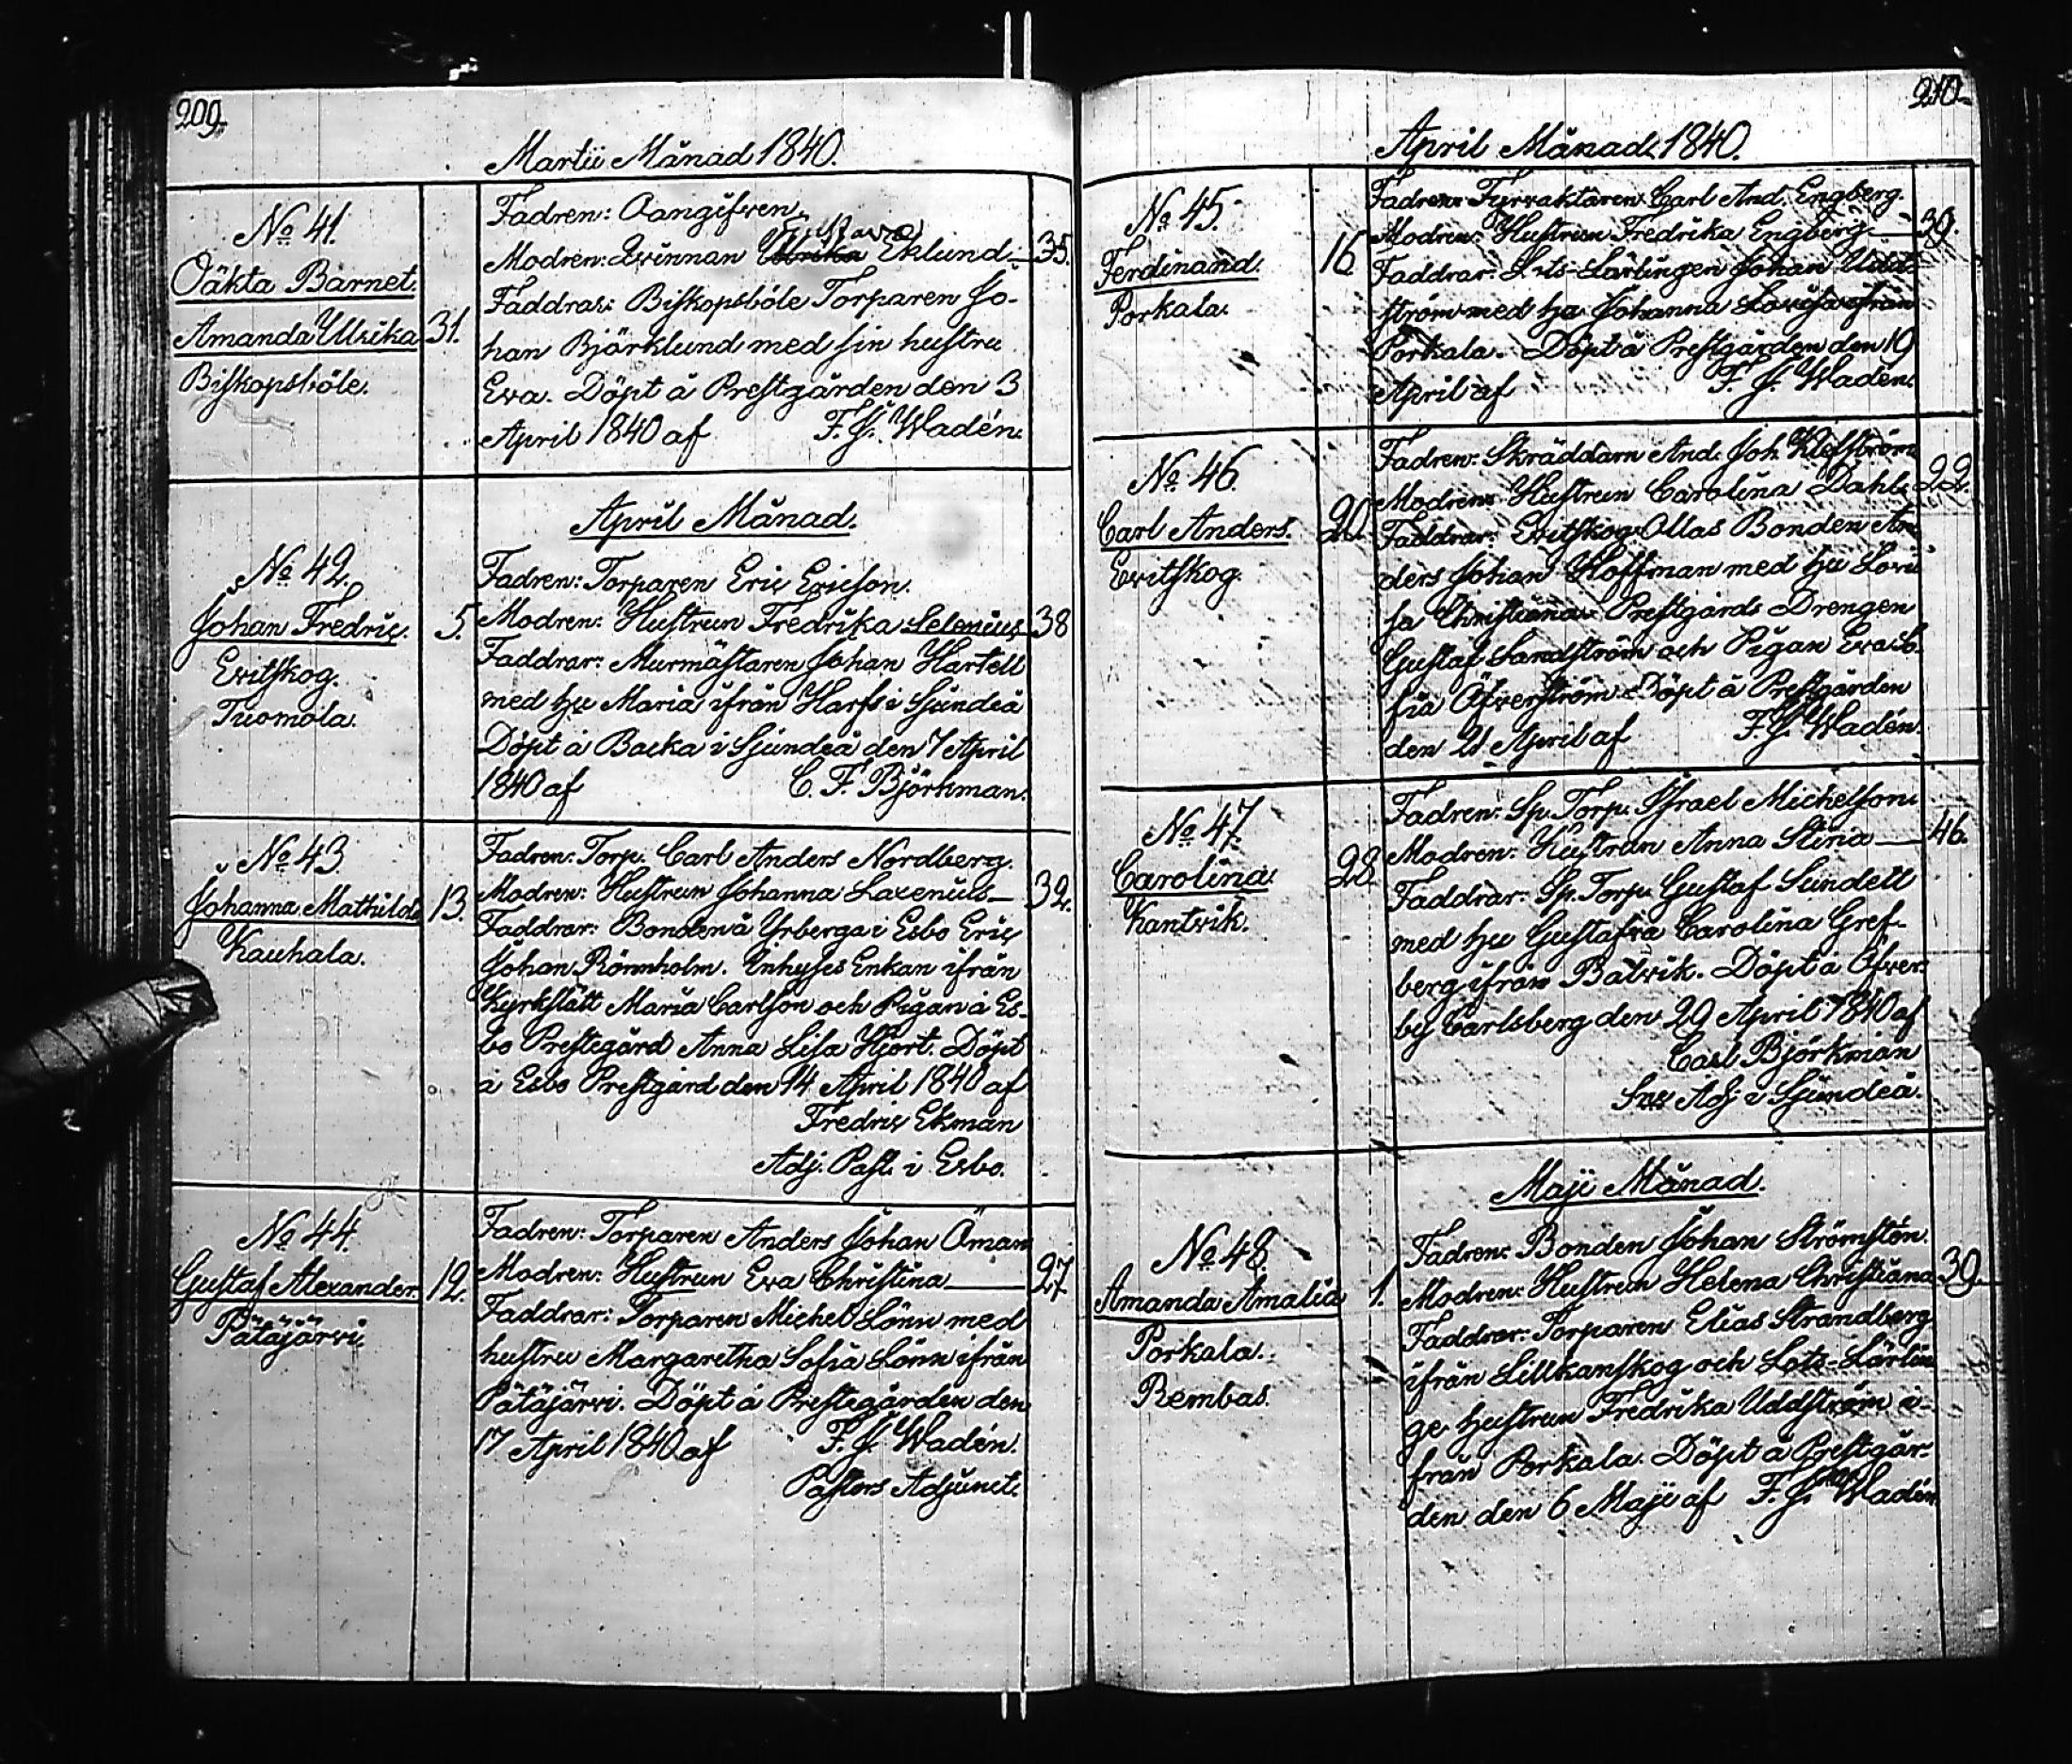 209.
Martii Månad 1840.
No 41.
Oäkta Barnet.
Amanda Ulrika
Biskopsböle.
31.
Fadren: Oangifven.
Gustava
Modren: Qvinnan Ulrika Eklund. 35.
Faddrar: Biskopsböle Torparen Jo-
han Björklund med sin hustru
Eva. Döpt å Prestgården den 3
April 1840 af F. J. Wadén.
April Månad.
No 42.
Johan Fredric.
Evitskog.
Tuomola.
5.
Fadren: Torparen Eric Ericson.
Modren: Hustrun Fredrika Selenius 38
Faddrar: Murmästaren Johan Hartell
med hu Maria ifrån Harfs i Sjundeå
Döpt å Backa i Sjundeå den 7 April
1840 af C. F. Björkman.
No 43.
Johanna Mathilda
Kauhala.
13.
Fadren: Torp. Carl Anders Nordberg.
Modren: Hustrun Johanna Laxenius 32.
Faddrar: Bonden å Yrberga i Esbo Eric
Johan Rönnholm. Inhyses Enkan ifrån
Kyrkslätt Maria Carlson och Pigan å Es-
bo Prestegård Anna Lisa Hjort. Döpt
å Esbo Prestgård den 14 April 1840 af
Fredric Ekman
Adj. Past. i Esbo.
No 44.
Gustaf Alexander.
Pätäjärvi.
12.
Fadren: Torparen Anders Johan Öman
Modren: Hustrun Eva Christina 27
Faddrar: Torparen Michel Lönn med
hustru Margaretha Sofia Lönn ifrån
Pätäjärvi. Döpt å Prestegården den
17 April 1840 af F. J. Wadén.
Pastors Adjunct.
210.
April Månad 1840.
No 45.
Ferdinand.
Porkala.
16
Fadren: Fyrvaktaren Carl And. Engberg.
Modren: Hustrun Fredrika Engberg 39.
Faddrar: Lots-Lärlingen Johan Udd-
ström med hu Johanna Lovisa ifrån
Porkala. Döpt å Prestgården den 19
April af F. J. Wadén.
No 46.
Carl Anders.
Evitskog.
20
Fadren: Skräddarn And. Joh. Klefström
Modren: Hustrun Carolina Dahl. 22.
Faddrar: Evitskog Ollas Bonden An
ders Johan Hoffman med hu Lovi
sa Christiana. Prestgårds Drengen
Gustaf Sandström och Pigan Eva So-
fia Öfverström. Döpt å Prestgården
den 21 April af F. J. Wadén.
No 47.
Carolina.
Kantvik.
28
Fadren: Sp. Torp. Israel Michelson.
Modren: Hustrun Anna Stina 46.
Faddrar: Sp. Torp. Gustaf Sundell
med hu Gustafva Carolina Gref-
berg ifrån Båtvik. Döpt å Öfver-
by Carlsberg den 29 April 1840 af
Carl Björkman
Adj. i Sjundeå.
Maji Månad.
No 48.
Amanda Amalia
Porkala.
Rembas.
1.
Fadren: Bonden Johan Strömsten.
Modren: Hustrun Helena Christiana 39.
Faddrar: Torparen Elias Strandberg
ifrån Lillkanskog och Lots-Lärlin
ge hustrun Fredrika Uddström i-
från Porkala. Döpt å Prestgår-
den den 6 Maji af F. J. Wadén